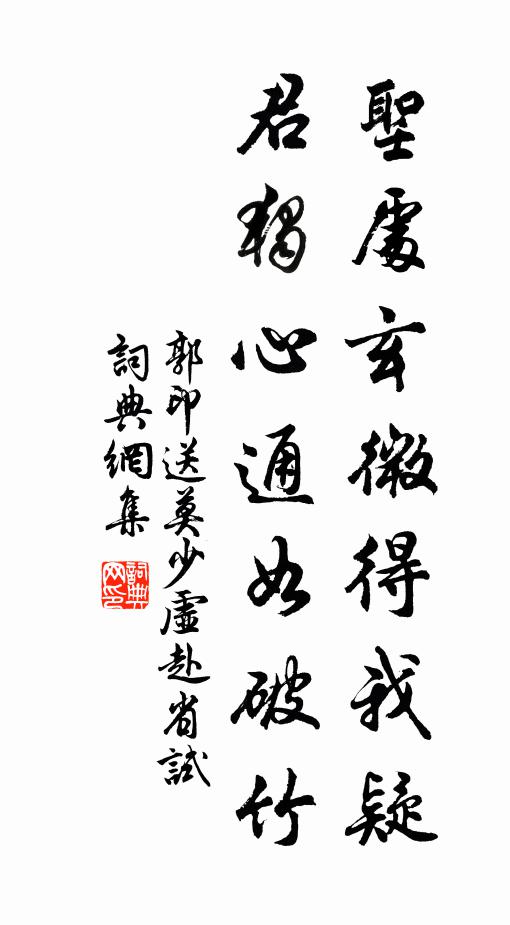 聖處玄微得我疑
君獨心通如破竹
郭印送莫少虛赴省試
詞典網集
詞典網印